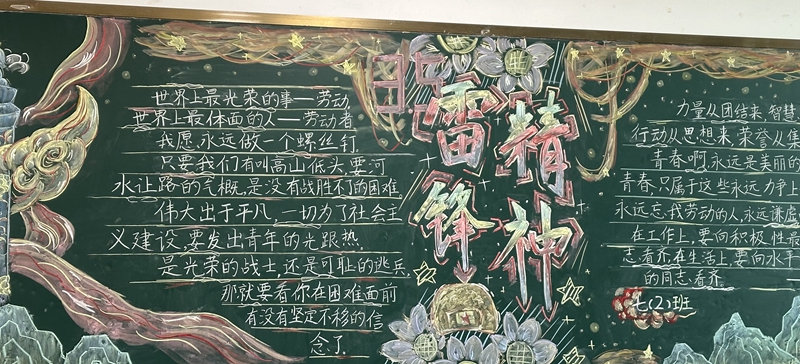 世界上最光荣的事——劳动
世界上最体面的人——劳动者
我愿永远做一个螺丝钉
只要我们有叫高山低头,要河
水让路的气概,是没有战胜不了的困难
伟大出于平凡,一切为了社会主
义建设,要发出青年的光跟热
是光荣的战士,还是可耻的逃兵,
那就要看你在困难面前
有没有坚定不移的信
念了
雷锋
精神
力量从团结来,智慧
行动从思想来,荣誉从集
青春啊,永远是美丽的
青春,只属于这些永远力争上
永远忘我劳动的人,永远谦虚
在工作上,要向积极性最
志看齐,在生活上,要向水平
的同志看齐
七(2)班